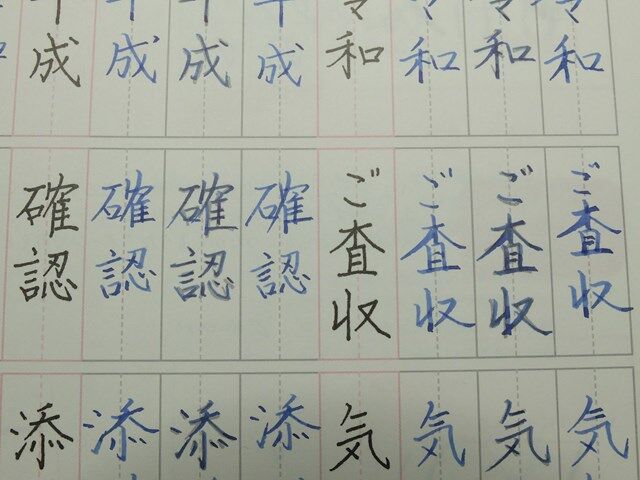 平成
平成
平成
平成
令和
令和
令和
令和
確認
確認
確認
確認
ご査収
ご査収
ご査収
ご査収
添
添
添
添
気
気
気
気